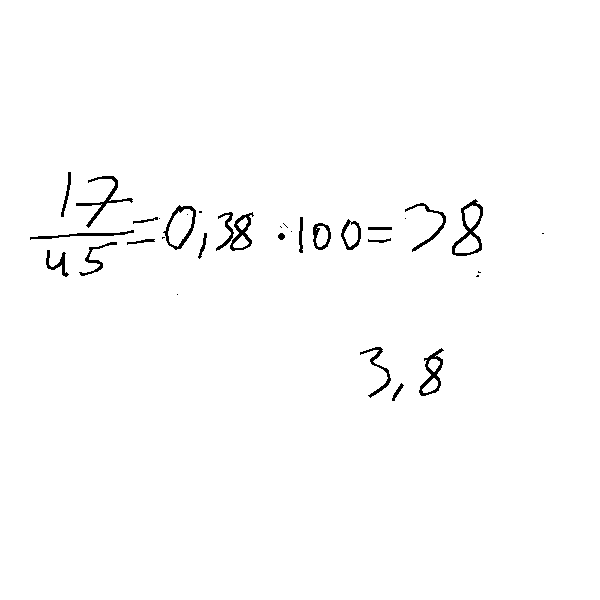 17/45=0,38·100=38
3,8